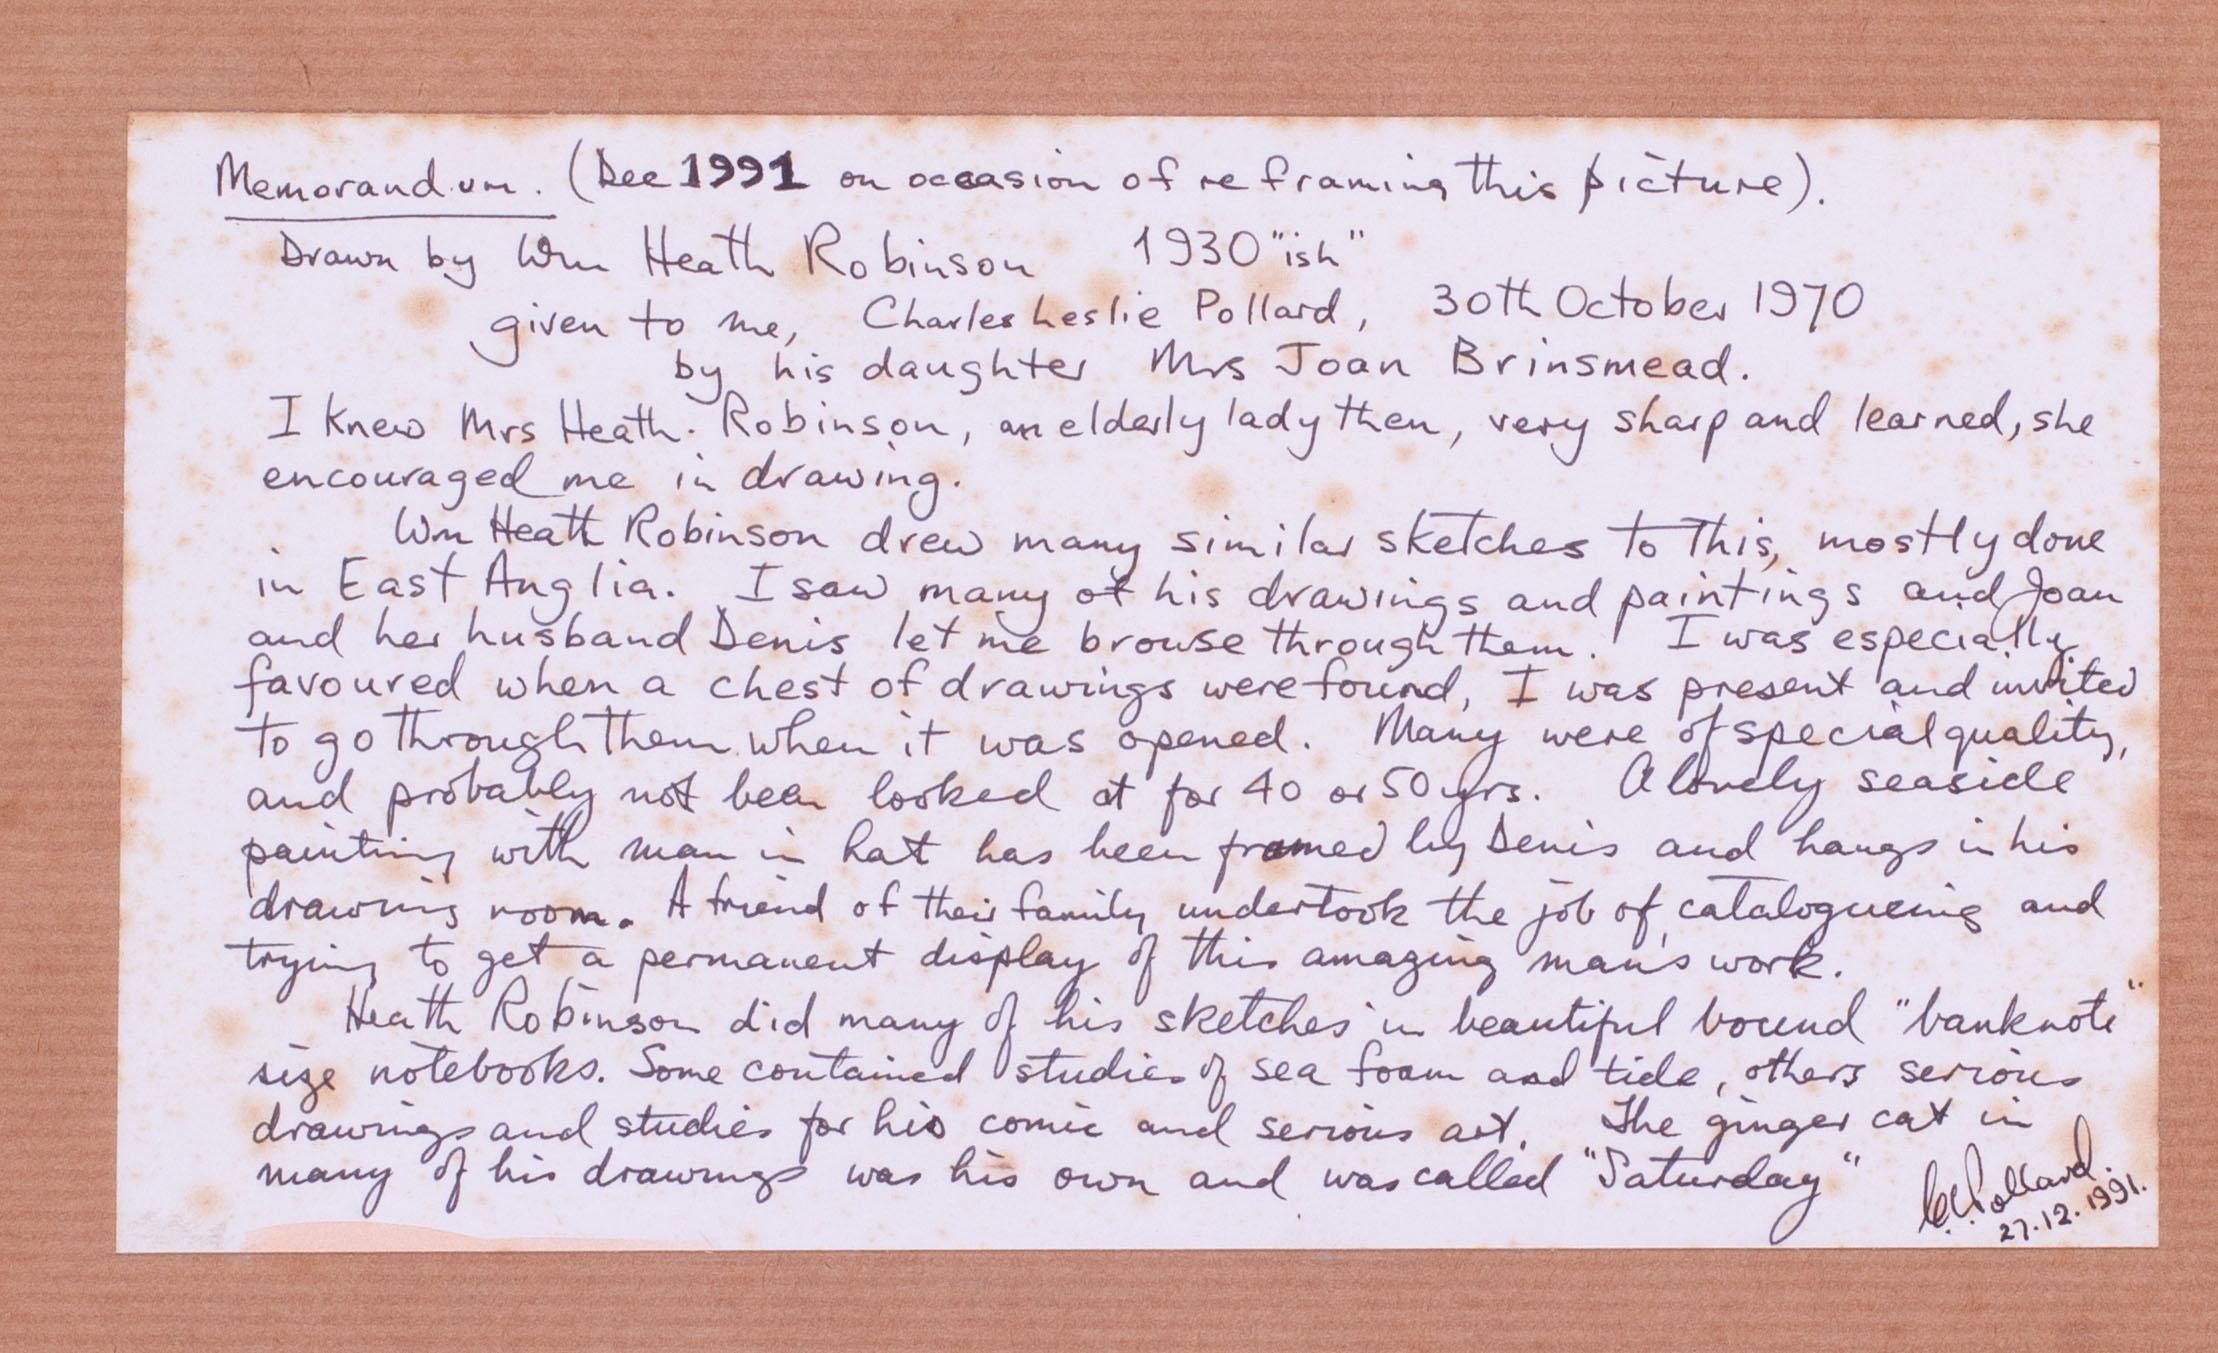 Memorandum. (Dec 1991 on occasion of reframing this picture).
Drawn by Wm Heath Robinson 1930 "ish"
given to me, Charles Leslie Pollard, 30th October 1970
by his daughter Mrs Joan Brinsmead.
I knew Mrs Heath-Robinson, an elderly lady then, very sharp and learned, she
encouraged me in drawing.
Wm Heath Robinson drew many similar sketches to this, mostly done
in East Anglia. I saw many of his drawings and paintings and Joan
and her husband Denis let me browse through them. I was especially
favoured when a chest of drawings were found, I was present and invited
to go through them when it was opened. Many were of special quality,
and probably not been looked at for 40 or 50 yrs. A lovely seaside
painting with man in hat has been framed by Denis and hangs in his
drawing room. A friend of their family undertook the job of catalogueing and
trying to get a permanent display of this amazing man's work.
Heath Robinson did many of his sketches in beautiful bound "banknote"
size notebooks. Some contained studies of sea foam and tide, others serious
drawings and studies for his comic and serious art. The ginger cat in
many of his drawings was his own and was called "Saturday"
C L Pollard.
27.12.1991.